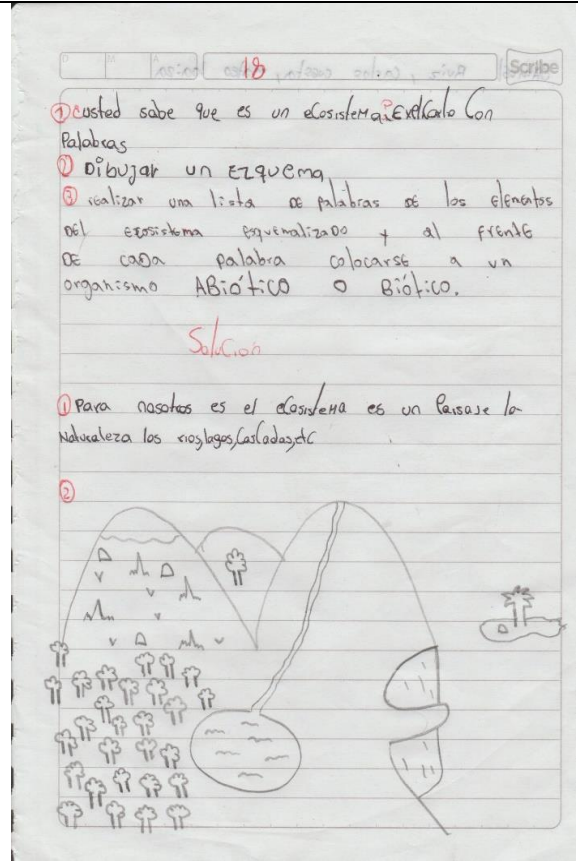 D M A 18 Scribe
① ¿usted sabe que es un ecosistema? Explicarlo Con
Palabras
② Dibujar un Ezquema
③ realizar una lista de palabras de los elementos
del ecosistema esquematizado y al frente
de cada palabra colocarse a un
organismo ABiótico o Biótico.
Solucion
① Para nosotros es el ecosistema es un Paisaje la
Naturaleza los rios, lagos, Cascadas, etc
②